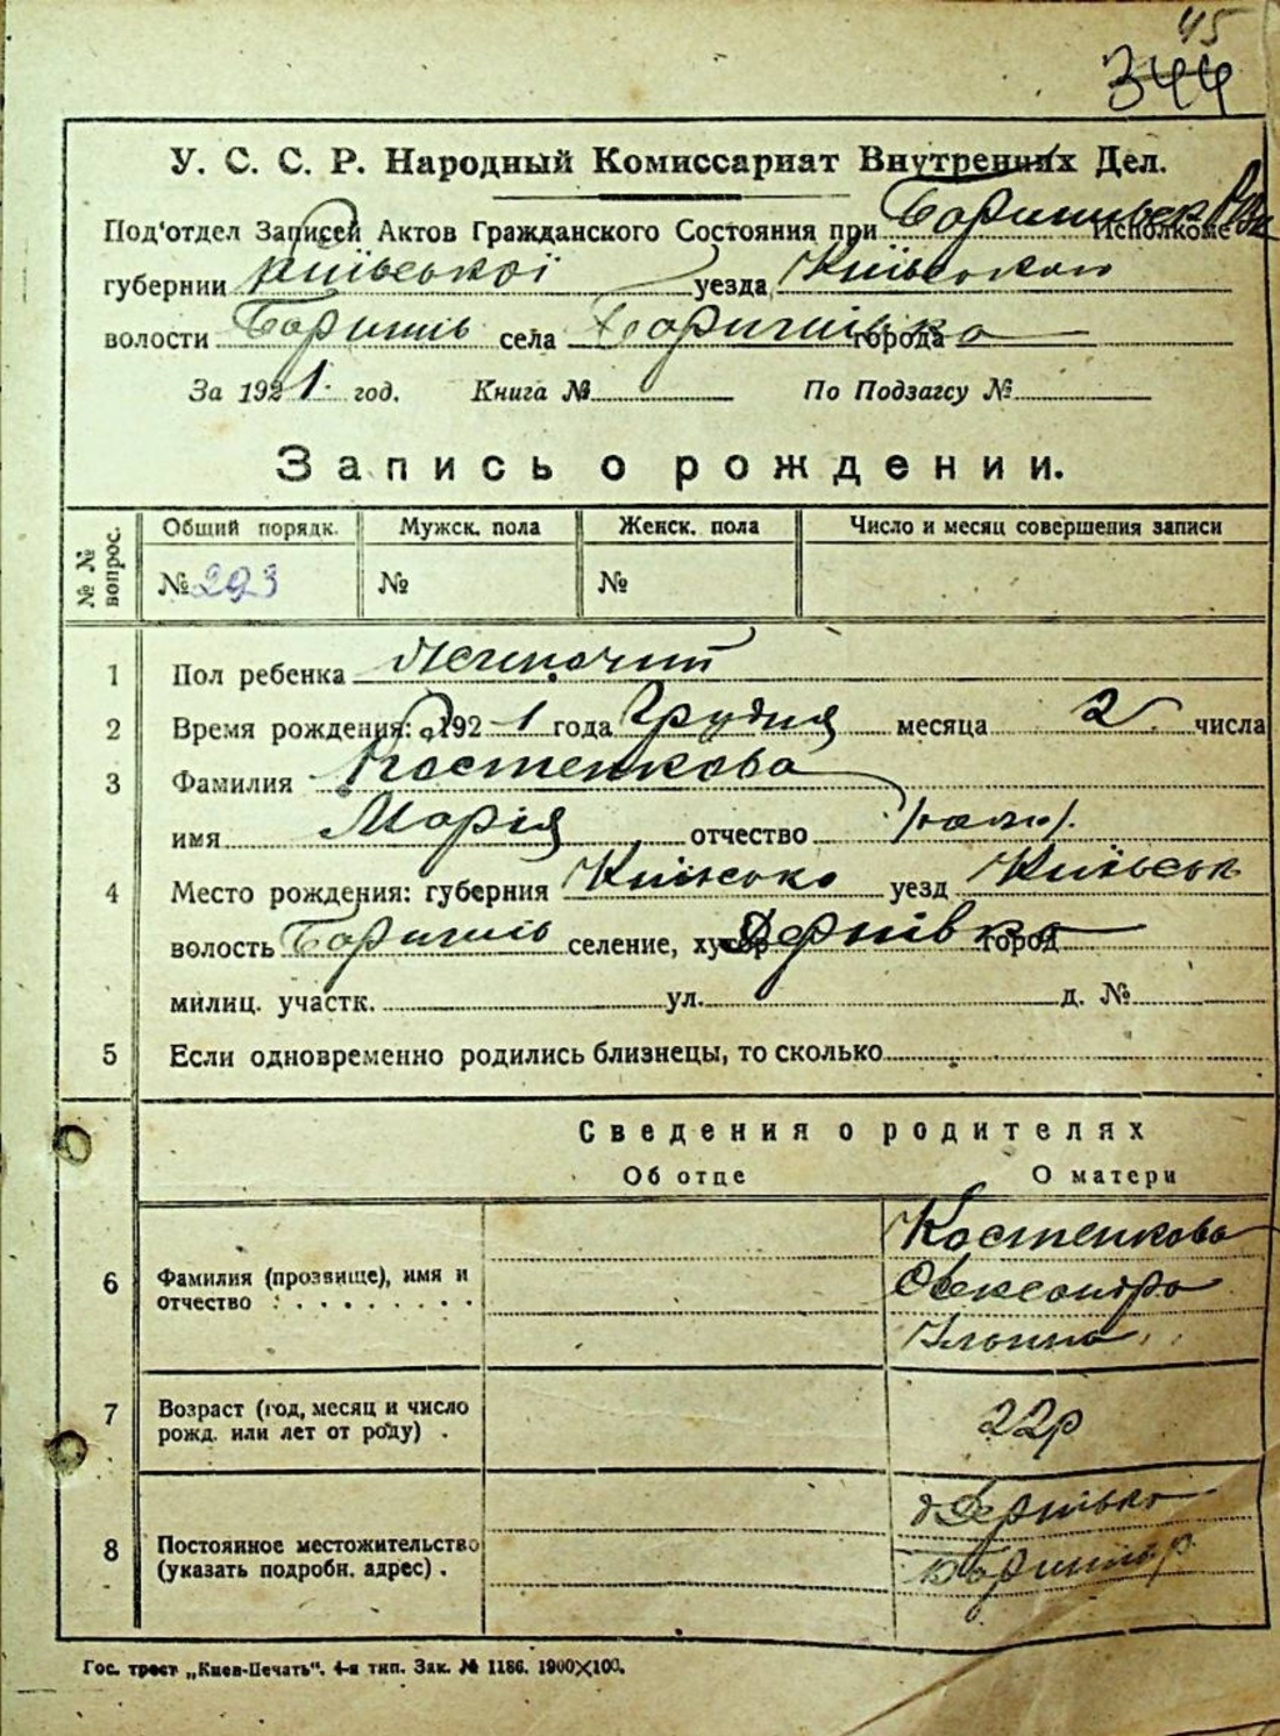 45
344
У. С. С. Р. Народный Комиссариат Внутренних Дел.
Под'отдел Записей Актов Гражданского Состояния при Исполкоме
губернии Київської уезда Київського
волости Баришів села Баришівка города
За 1921. год. Книга № По Подзагсу №
Запись о рождении.
№№ вопрос. Общий порядк. Мужск. пола Женск. пола Число и месяц совершения записи
№ 293 № №
1 Пол ребенка
2 Время рождения: 192 1 года Грудня месяца 2 числа
3 Фамилия Костенкова
имя Марія отчество
4 Место рождения: губерния Київсько уезд Київськ
волость Баришів селение, хутор Дернівка город
милиц. участк. ул. д. №
5 Если одновременно родились близнецы, то сколько
Сведения о родителях
Об отце О матери
6 Фамилия (прозвище), имя и отчество : Костенкова
Олександра
Ільїнна
7 Возраст (год, месяц и число рожд. или лет от роду) . 22р
8 Постоянное местожительство (указать подробн. адрес) . Дернівка
Гос. трест „Киев-Печать“. 4-я тип. Зак. № 1186. 1900×100.